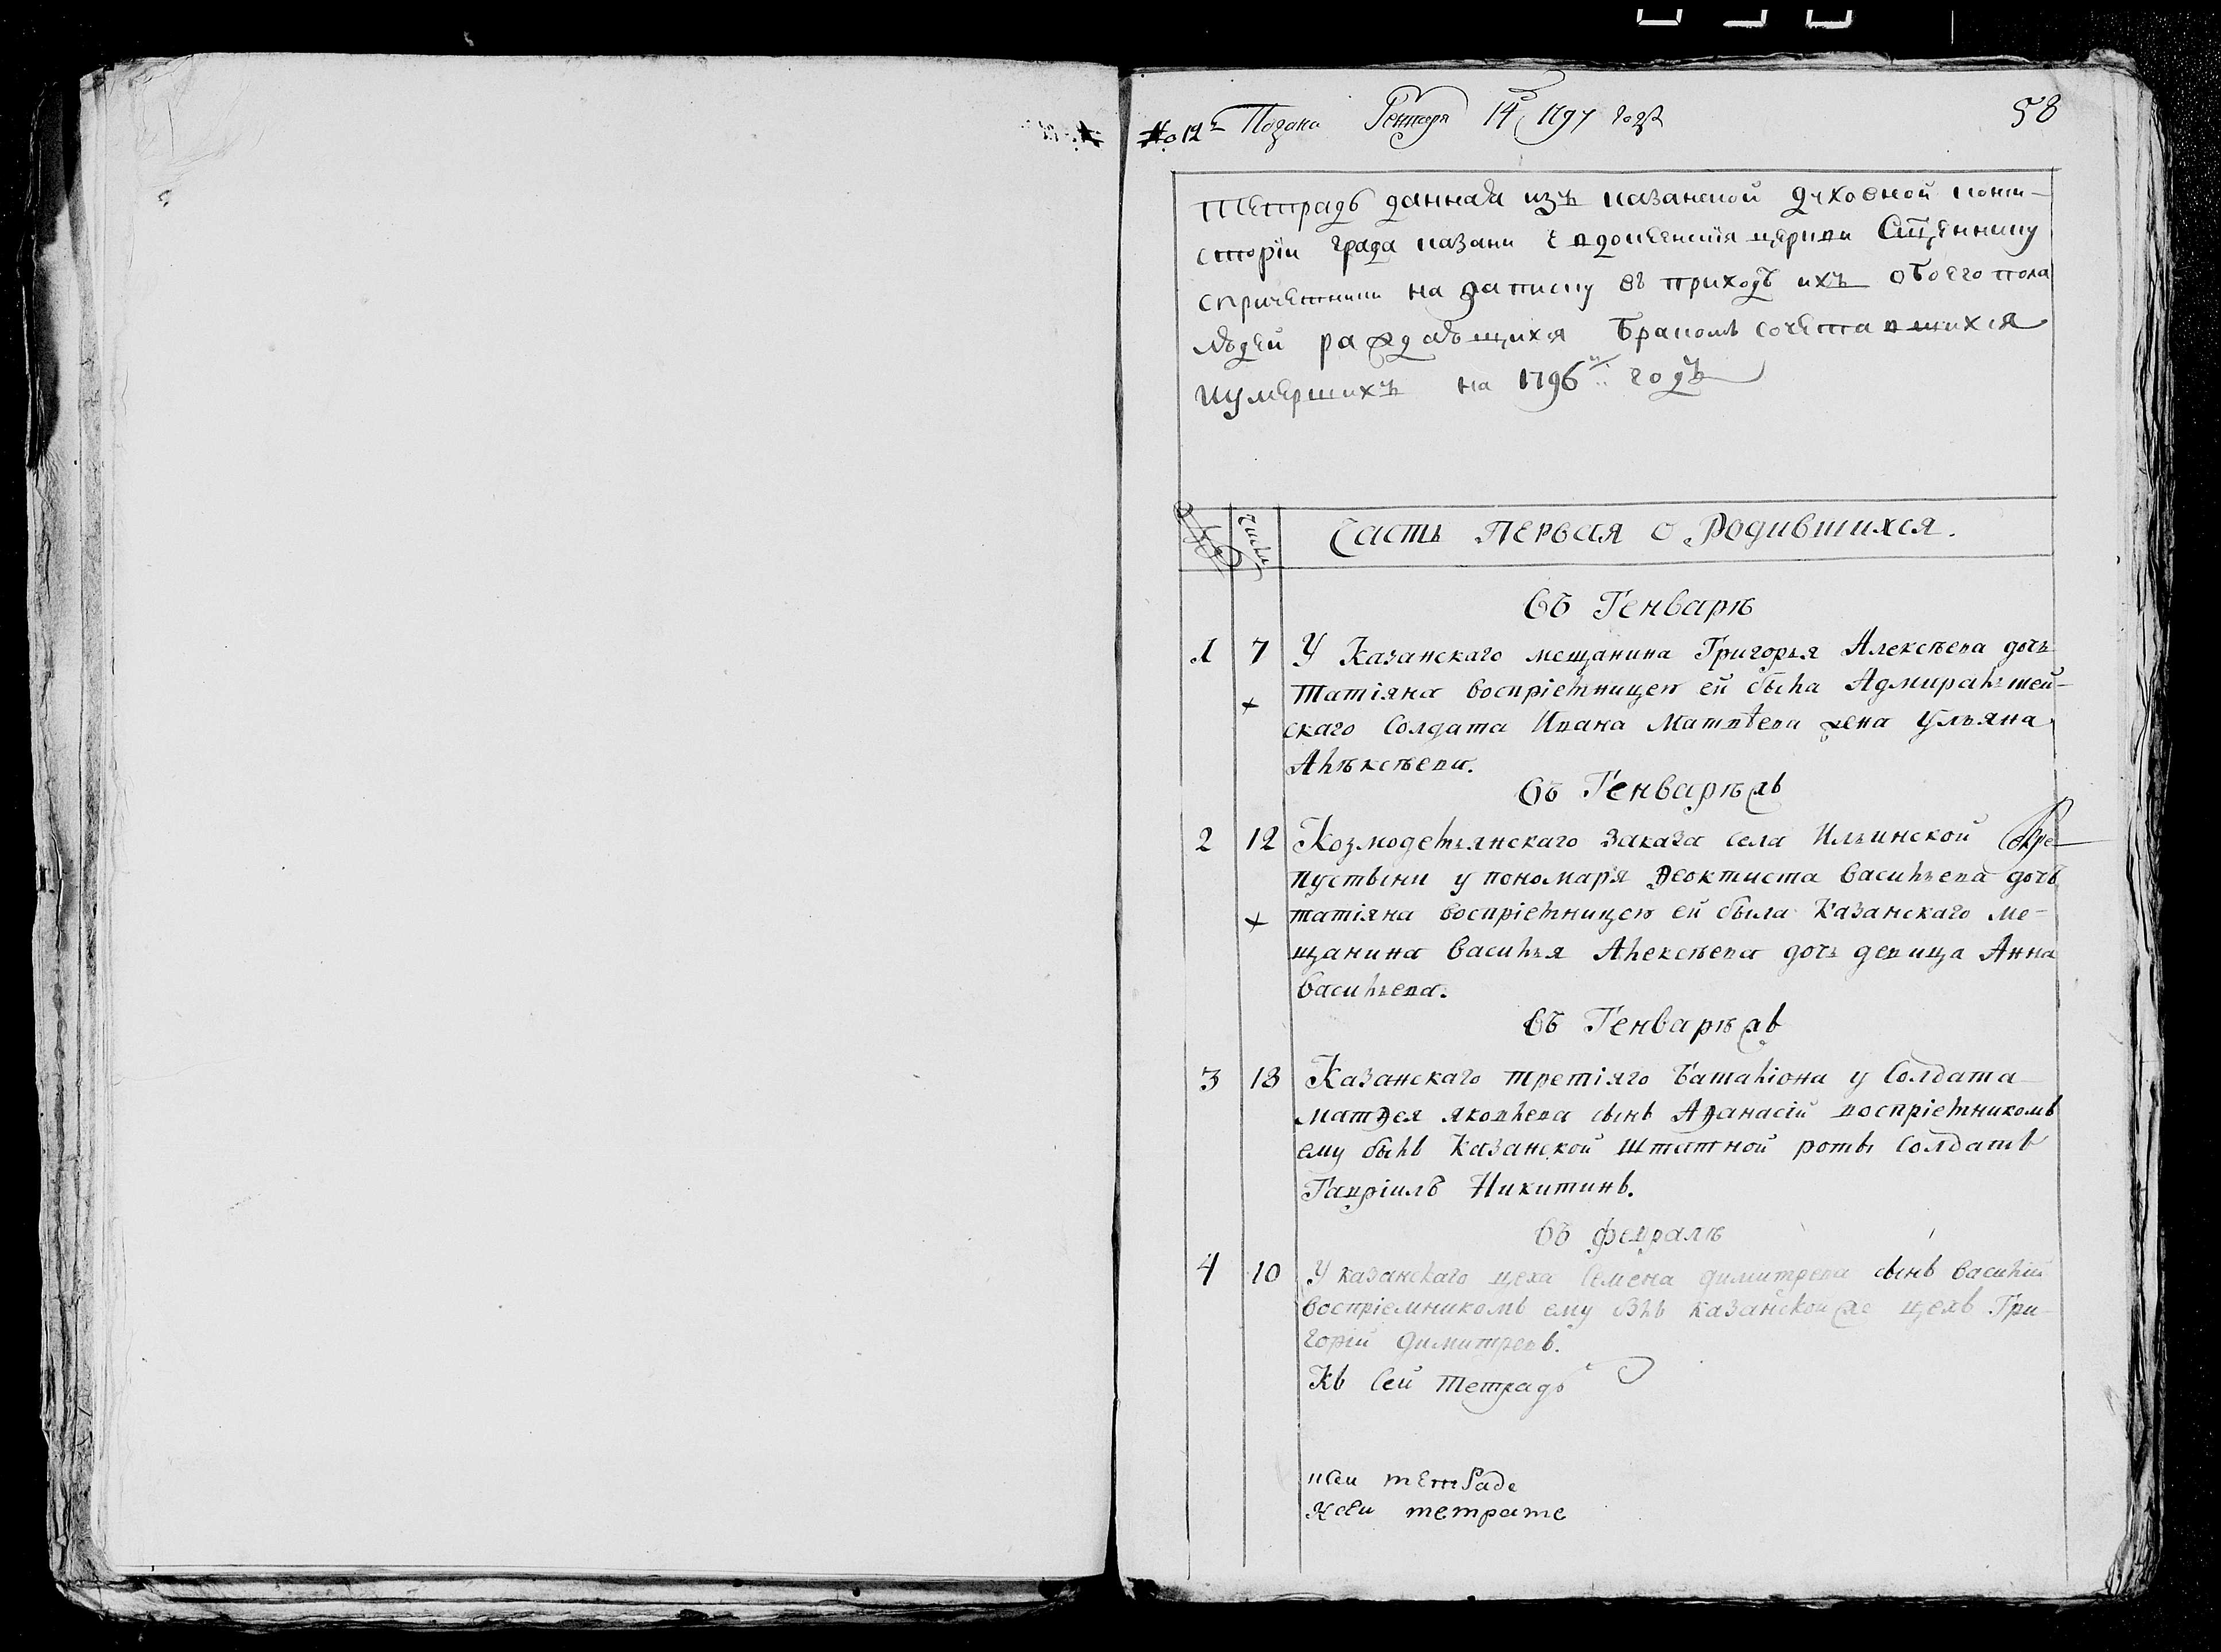 № 12 Подана Генваря 14 1797 года
58
Тетрадь данная изъ казанской духовной конси-
сторіи града казани Евдокеенския церкви Сщеннику
спричетники на записку въ приходѣ ихъ обоего пола
людей раждающихся бракомъ сочетавшихся
иумершихъ на 1796 годъ
числа
Часть первая о родившихся.
Въ Генварѣ
1 7 У Казанскаго мещанина Григорья Алексѣева дочь
татіяна воспріемницею ей была Адмиралтей-
скаго Солдата Ивана Матвѣева жена Ульяна
Алѣксѣева.
Въ Генварѣ жъ
2 12 Козмодемьянскаго заказа села Ильинской
пустыни у пономаря Ѳеоктиста Васильева дочь
татіяна воспріемницею ей была Казанскаго ме-
щанина Василья Алексѣева дочь девица Анна
Васильева.
Въ Генварѣ жъ
3 18 Казанскаго третіяго баталіона у Солдата
матѳея яковлева сынъ Аѳанасій воспріемникомъ
ему былъ Казанской штатной роты Солдатъ
Гавріилъ Никитинъ.
Въ февралѣ
4 10 У казанскаго цеха Семена димитрева сынъ василій
воспріемникомъ ему былъ казанской же цехъ Гри-
горій димитревъ.
Къ сей тетрадь
ксеи тетраде
ксеи тетрате